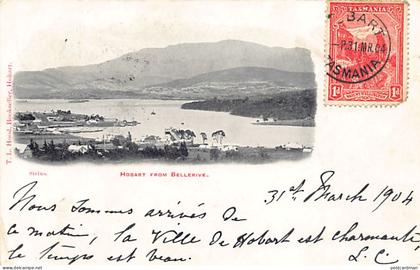 TASMANIA
BART
P.31.MR.04
TASMANIA
1d 1d
T. L. Hood, Bookseller, Hobart.
HOBART FROM BELLERIVE.
31st March 1904
Nous sommes arrivés de
ce matin, la Ville de Hobart est charmante,
le temps est beau. L. C
postcardman